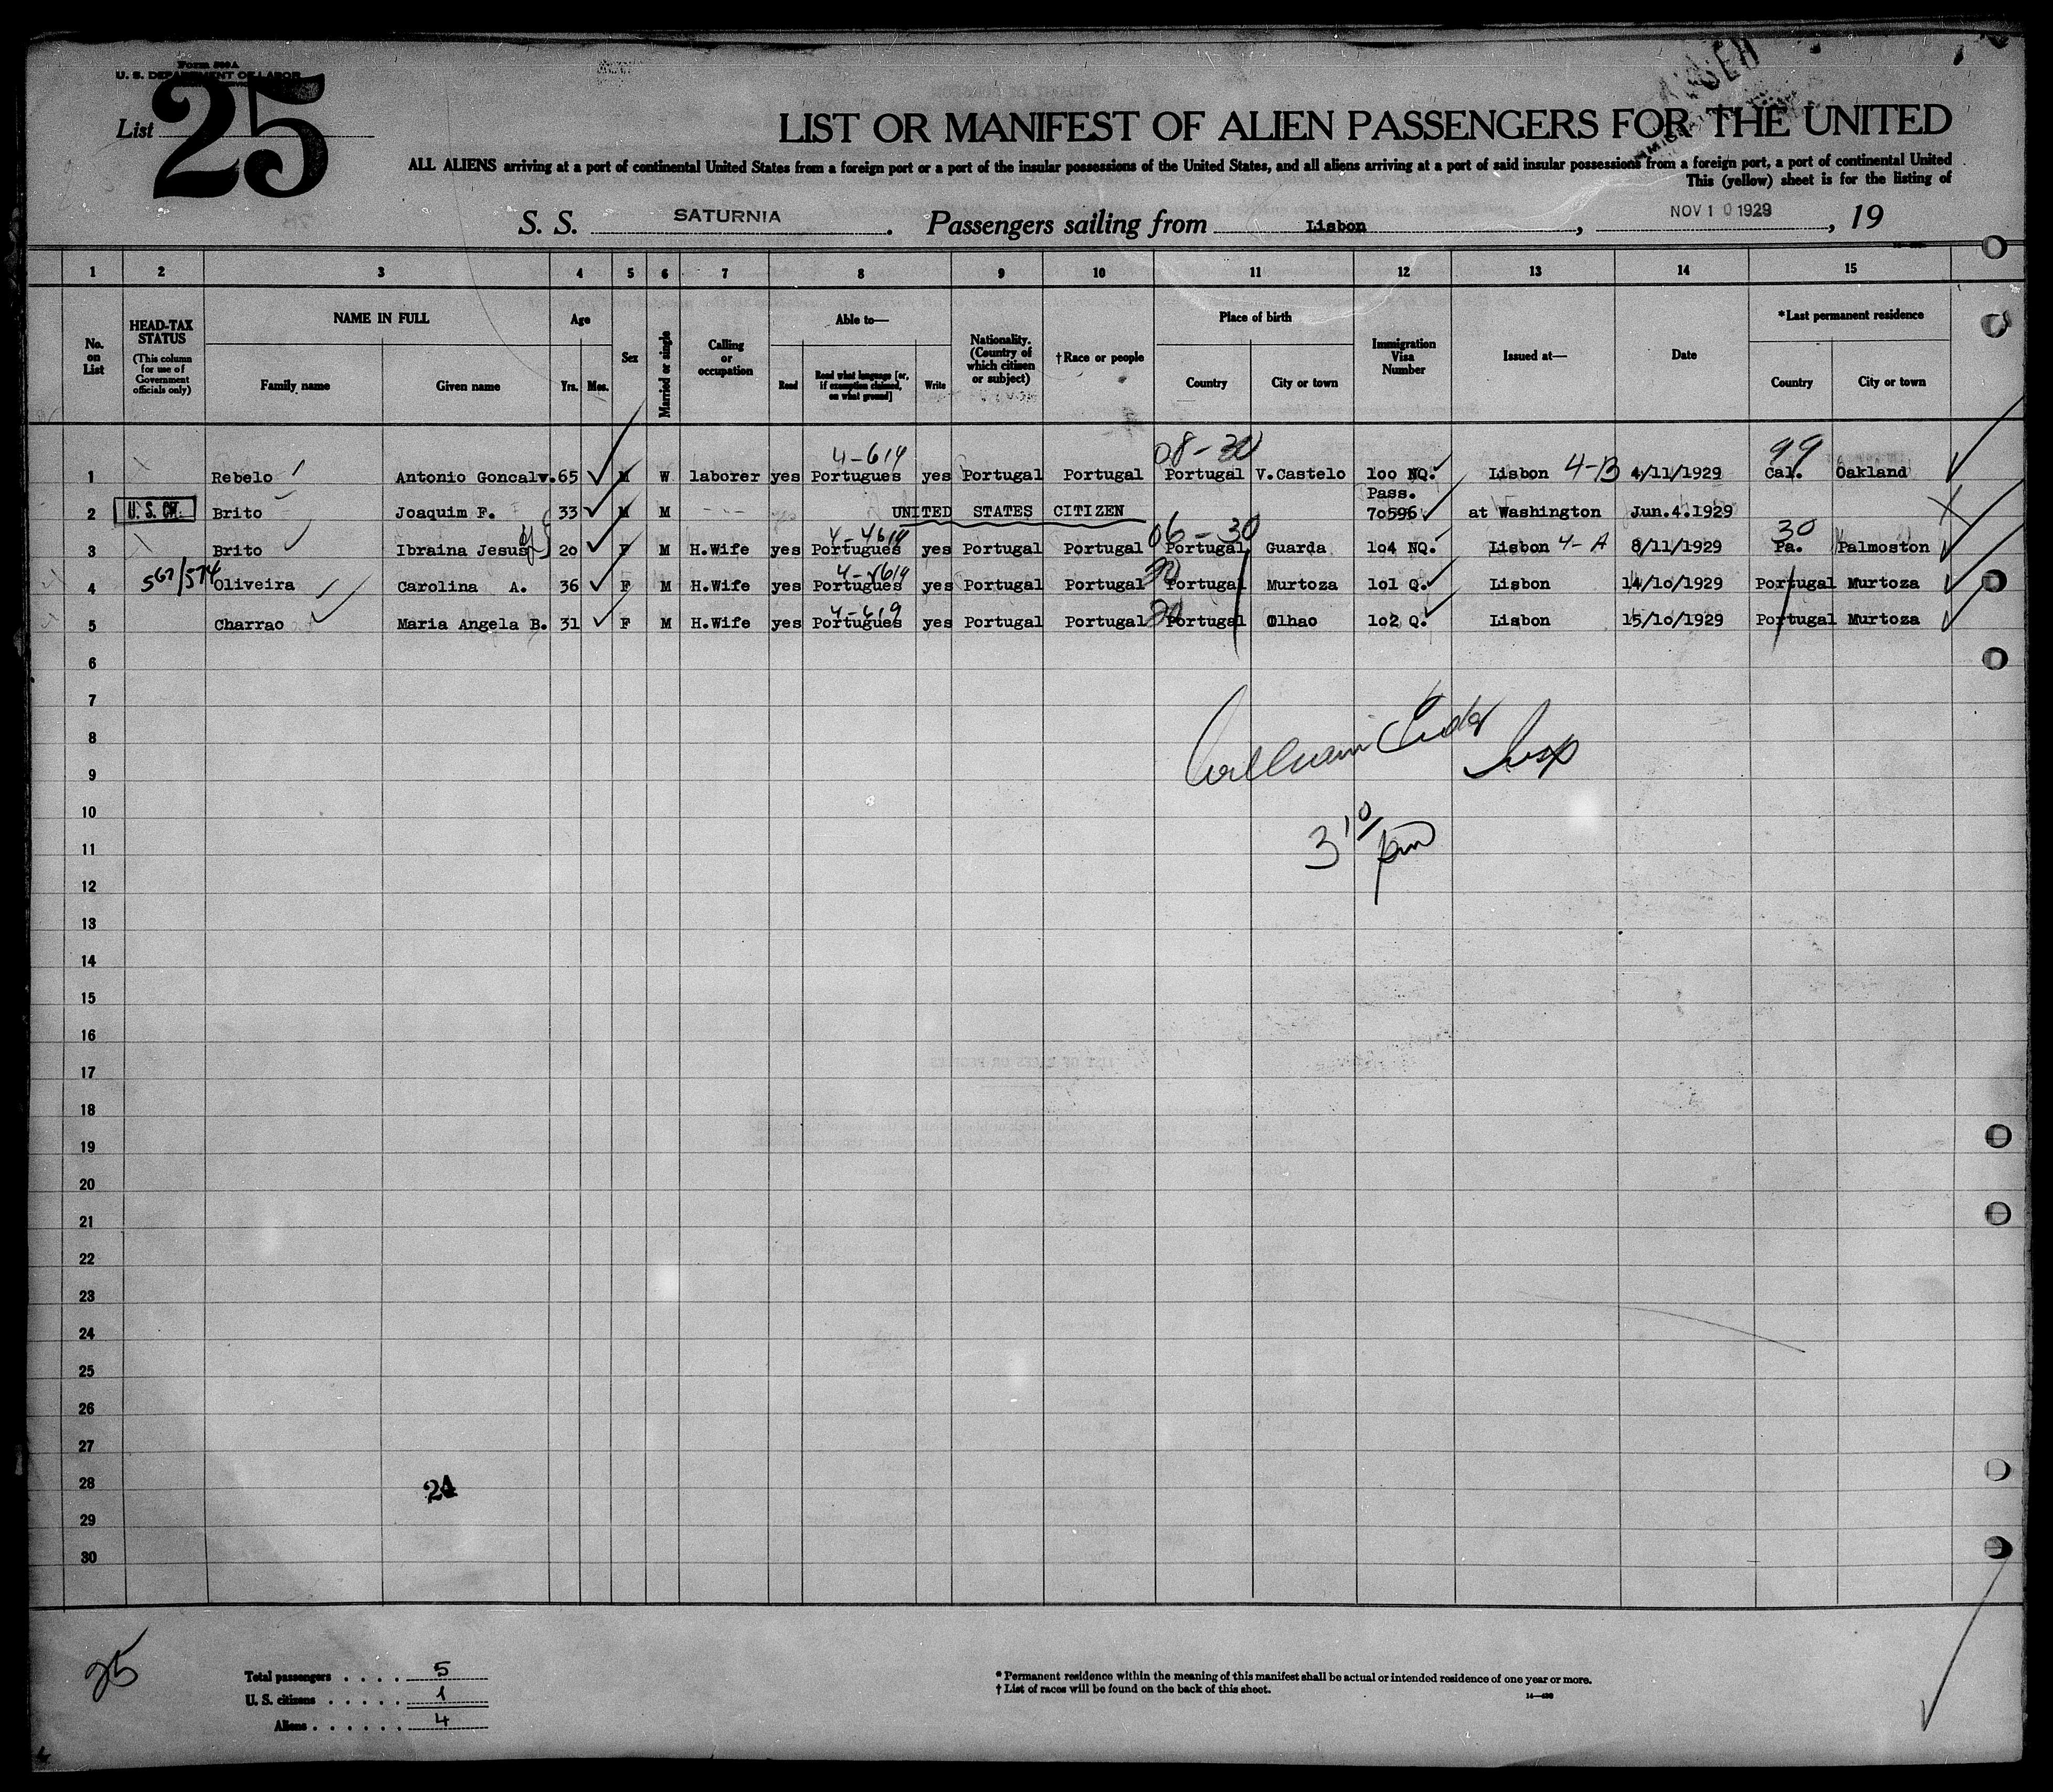 Form 500 A
U. S. DEPARTMENT OF LABOR
List 25
LIST OR MANIFEST OF ALIEN PASSENGERS FOR THE UNITED
ALL ALIENS arriving at a port of continental United States from a foreign port or a port of the insular possessions of the United States, and all aliens arriving at a port of said insular possessions from a foreign port, a port of continental United
This (yellow) sheet is for the listing of
S. S. SATURNIA. Passengers sailing from Lisbon, NOV 10 1929, 19
1 2 3 4 5 6 7 8 9 10 11 12 13 14 15
No. on List
HEAD-TAX STATUS (This column for use of Government officials only)
NAME IN FULL Family name Given name
Age Yrs. Mos.
Sex
Married or single
Calling or occupation
Able to— Read Read what language [or, if exemption claimed, on what ground] Write
Nationality. (Country of which citizen or subject)
†Race or people
Place of birth Country City or town
Immigration Visa Number
Issued at—
Date
*Last permanent residence Country City or town
4-619 08-30 99
1 Rebelo Antonio Goncalv. 65 M W laborer yes Portugues yes Portugal Portugal Portugal V.Castelo 100 NQ. Lisbon 4-B 4/11/1929 Cal. Oakland
2 U. S. CIT. Brito Joaquim F. 33 M M UNITED STATES CITIZEN Pass. 70596 at Washington Jun.4.1929
06-30 30
3 Brito Ibraina Jesus 20 F M H.Wife yes Portugues yes Portugal Portugal Portugal Guarda 104 NQ. Lisbon 4-A 8/11/1929 Pa. Palmoston
4 567/574 Oliveira Carolina A. 36 F M H.Wife yes Portugues yes Portugal Portugal Portugal Murtoza 101 Q. Lisbon 14/10/1929 Portugal Murtoza
4-619
5 Charrao Maria Angela B. 31 F M H.Wife yes Portugues yes Portugal Portugal Portugal Olhao 102 Q. Lisbon 15/10/1929 Portugal Murtoza
6
7
8
William Insp
9
10
3 10 pm
11
12
13
14
15
16
17
18
19
20
21
22
23
24
25
26
27
28 24
29
30
25
Total passengers . . . . 5
U. S. citizens . . . . . 1
Aliens . . . . . . 4
* Permanent residence within the meaning of this manifest shall be actual or intended residence of one year or more.
† List of races will be found on the back of this sheet.